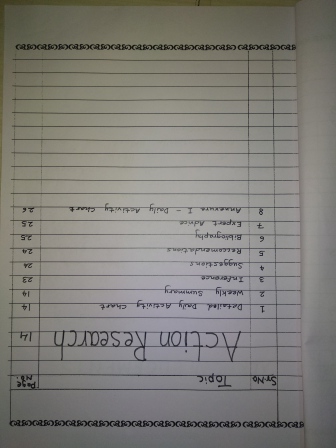 Sr.No Topic Page No.
Action Research 14
1 Detailed Daily Activity Chart 14
2 Weekly Summary 19
3 Inference 23
4 Suggestions 24
5 Reccomendations 24
6 Bibliography 25
7 Expert Advice 25
8 Annexure I - Daily Activity Chart 26